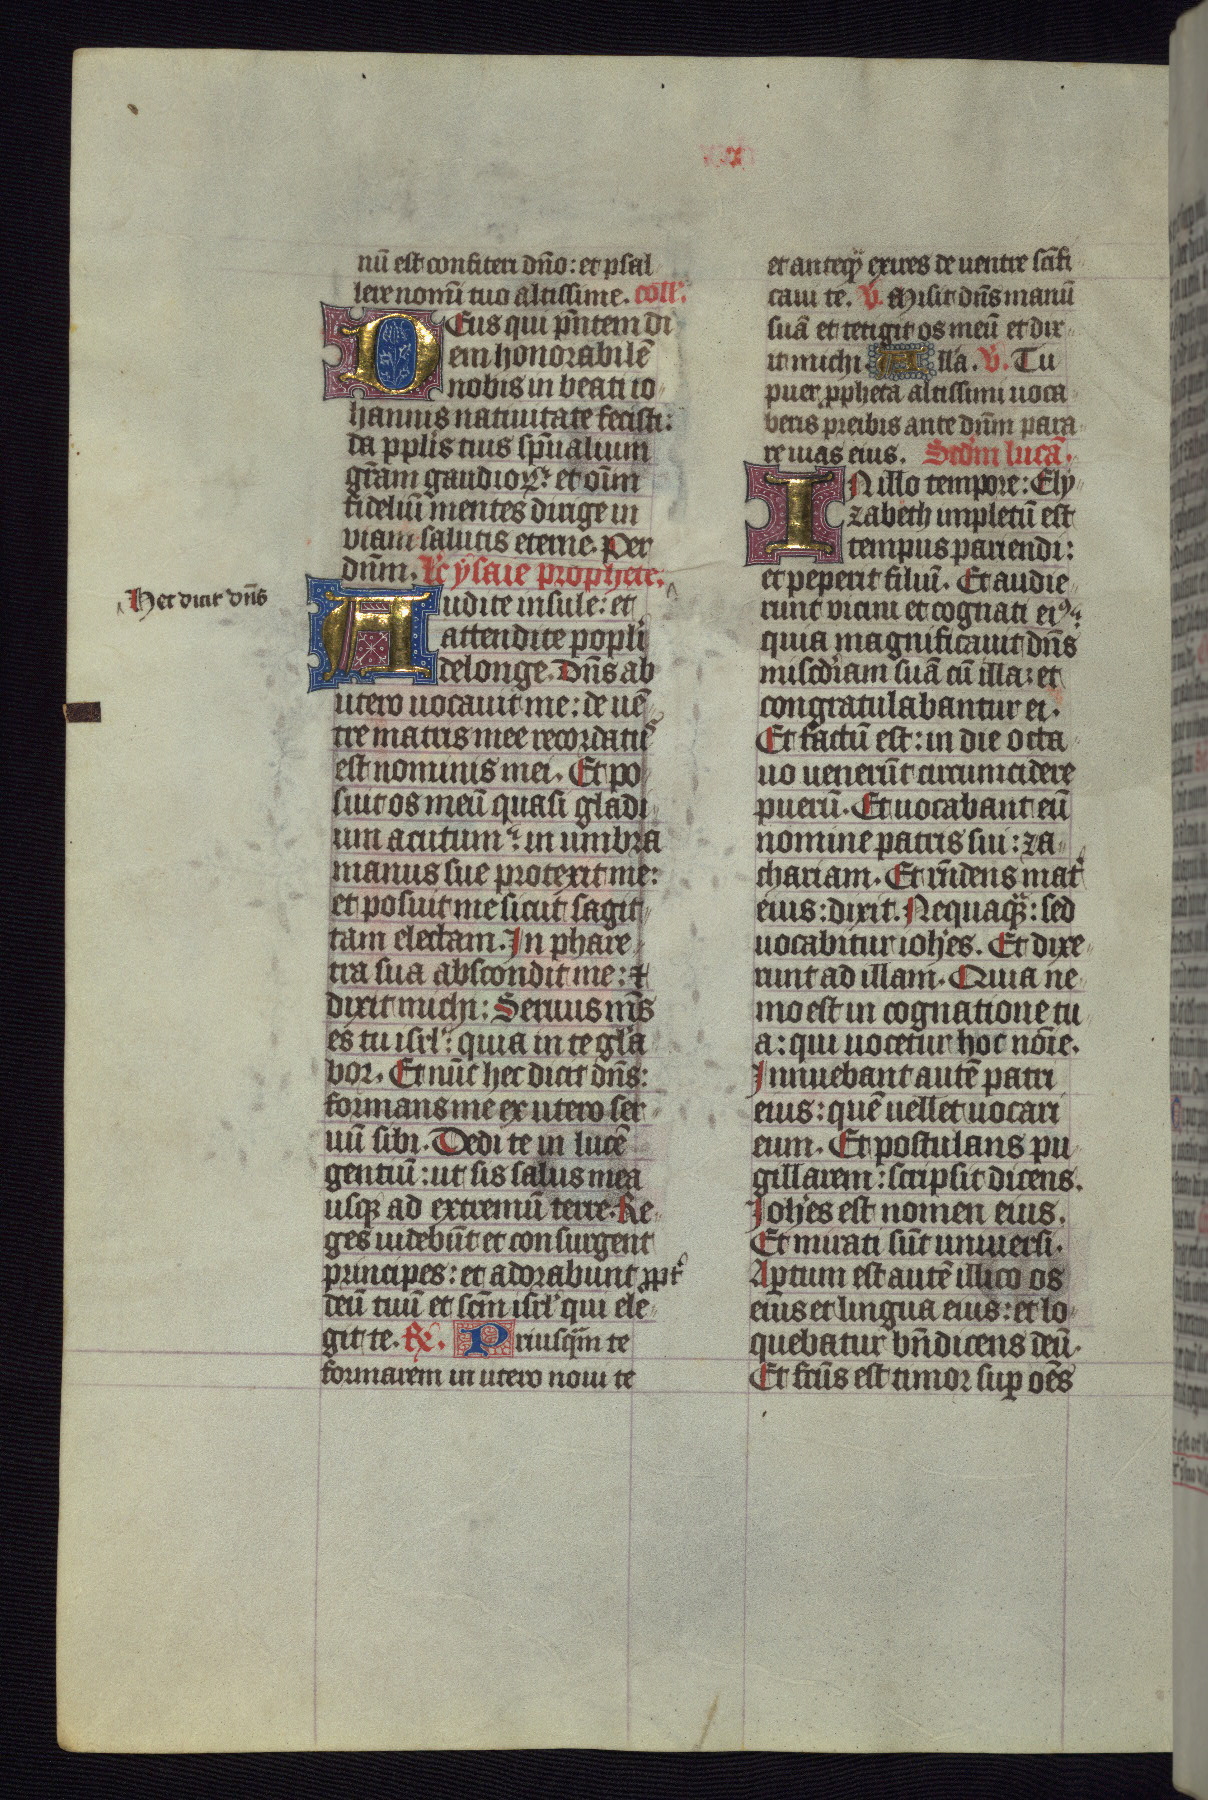 nū est confiteri dn̄o: et psal
lere nomī tuo altissime. coll'.
Deus qui pn̄tem di
em honorabilē
nobis in beati io
hannis natiuitate fecisti:
da pplis tuis sp̄ualium
gr̄am gaudioꝝ: et oīm
fideliū mentes dirige in
viam salutis eterne. Per
dn̄m. Lc̄ ysaie prophete.
Hec dicit dn̄s
Audite insule: et
attendite popli
delonge. Dn̄s ab
utero uocauit me: de uē
tre matris mee recordatus
est nominis mei. Et po
suit os meū quasi gladi
um acutum: in umbra
manus sue protexit me:
et posuit me sicut sagit
tam electam. In phare
tra sua abscondit me: ⁊
dixit michi: Seruus ms̄
es tu isrl': quia in te gl'a
bor. Et nūc hec dicit dn̄s:
formans me ex utero ser
uū sibi. Dedi te in lucē
gentiū: ut sis salus mea
usqꝫ ad extremū terre. Re
ges uidebūt et consurgent
principes: et adorabunt ꝓpt'
deū tuū et scm̄ isrl' qui ele
git te. R̸. Priusqm̄ te
formarem in utero noui te
et anteqꝫ exires de uentre sc̄ifi
caui te. V. Misit dn̄s manū
suā et tetigit os meū et dix
it michi. Alla. V. Tu
puer ꝓpheta altissimi uoca
beris preibis ante dn̄m para
re uias eius. Scd'm lucā.
In illo tempore: Ely
zabeth impletū est
tempus pariendi:
et peperit filiū. Et audie
runt vicini et cognati eiꝰ:
quia magnificauit dn̄s
misc̄diam suā cū illa: et
congratulabantur ei.
Et factū est: in die octa
uo uenerūt circumcidere
puerū. Et uocabant eū
nomine patris sui: za
chariam. Et rn̄dens mat'
eius: dixit. Nequaqꝫ: sed
uocabitur ioh'es. Et dixe
runt ad illam. Quia ne
mo est in cognatione tu
a: qui uocetur hoc nōie.
Innuebant autē patri
eius: quē uellet uocari
eum. Et postulans pu
gillarem: scripsit dicens.
Ioh'es est nomen eius.
Et mirati sūt uniuersi.
Aptum est autē illico os
eius et lingua eius: et lo
quebatur bn̄dicens deū.
Et fc̄us est timor suꝑ oēs